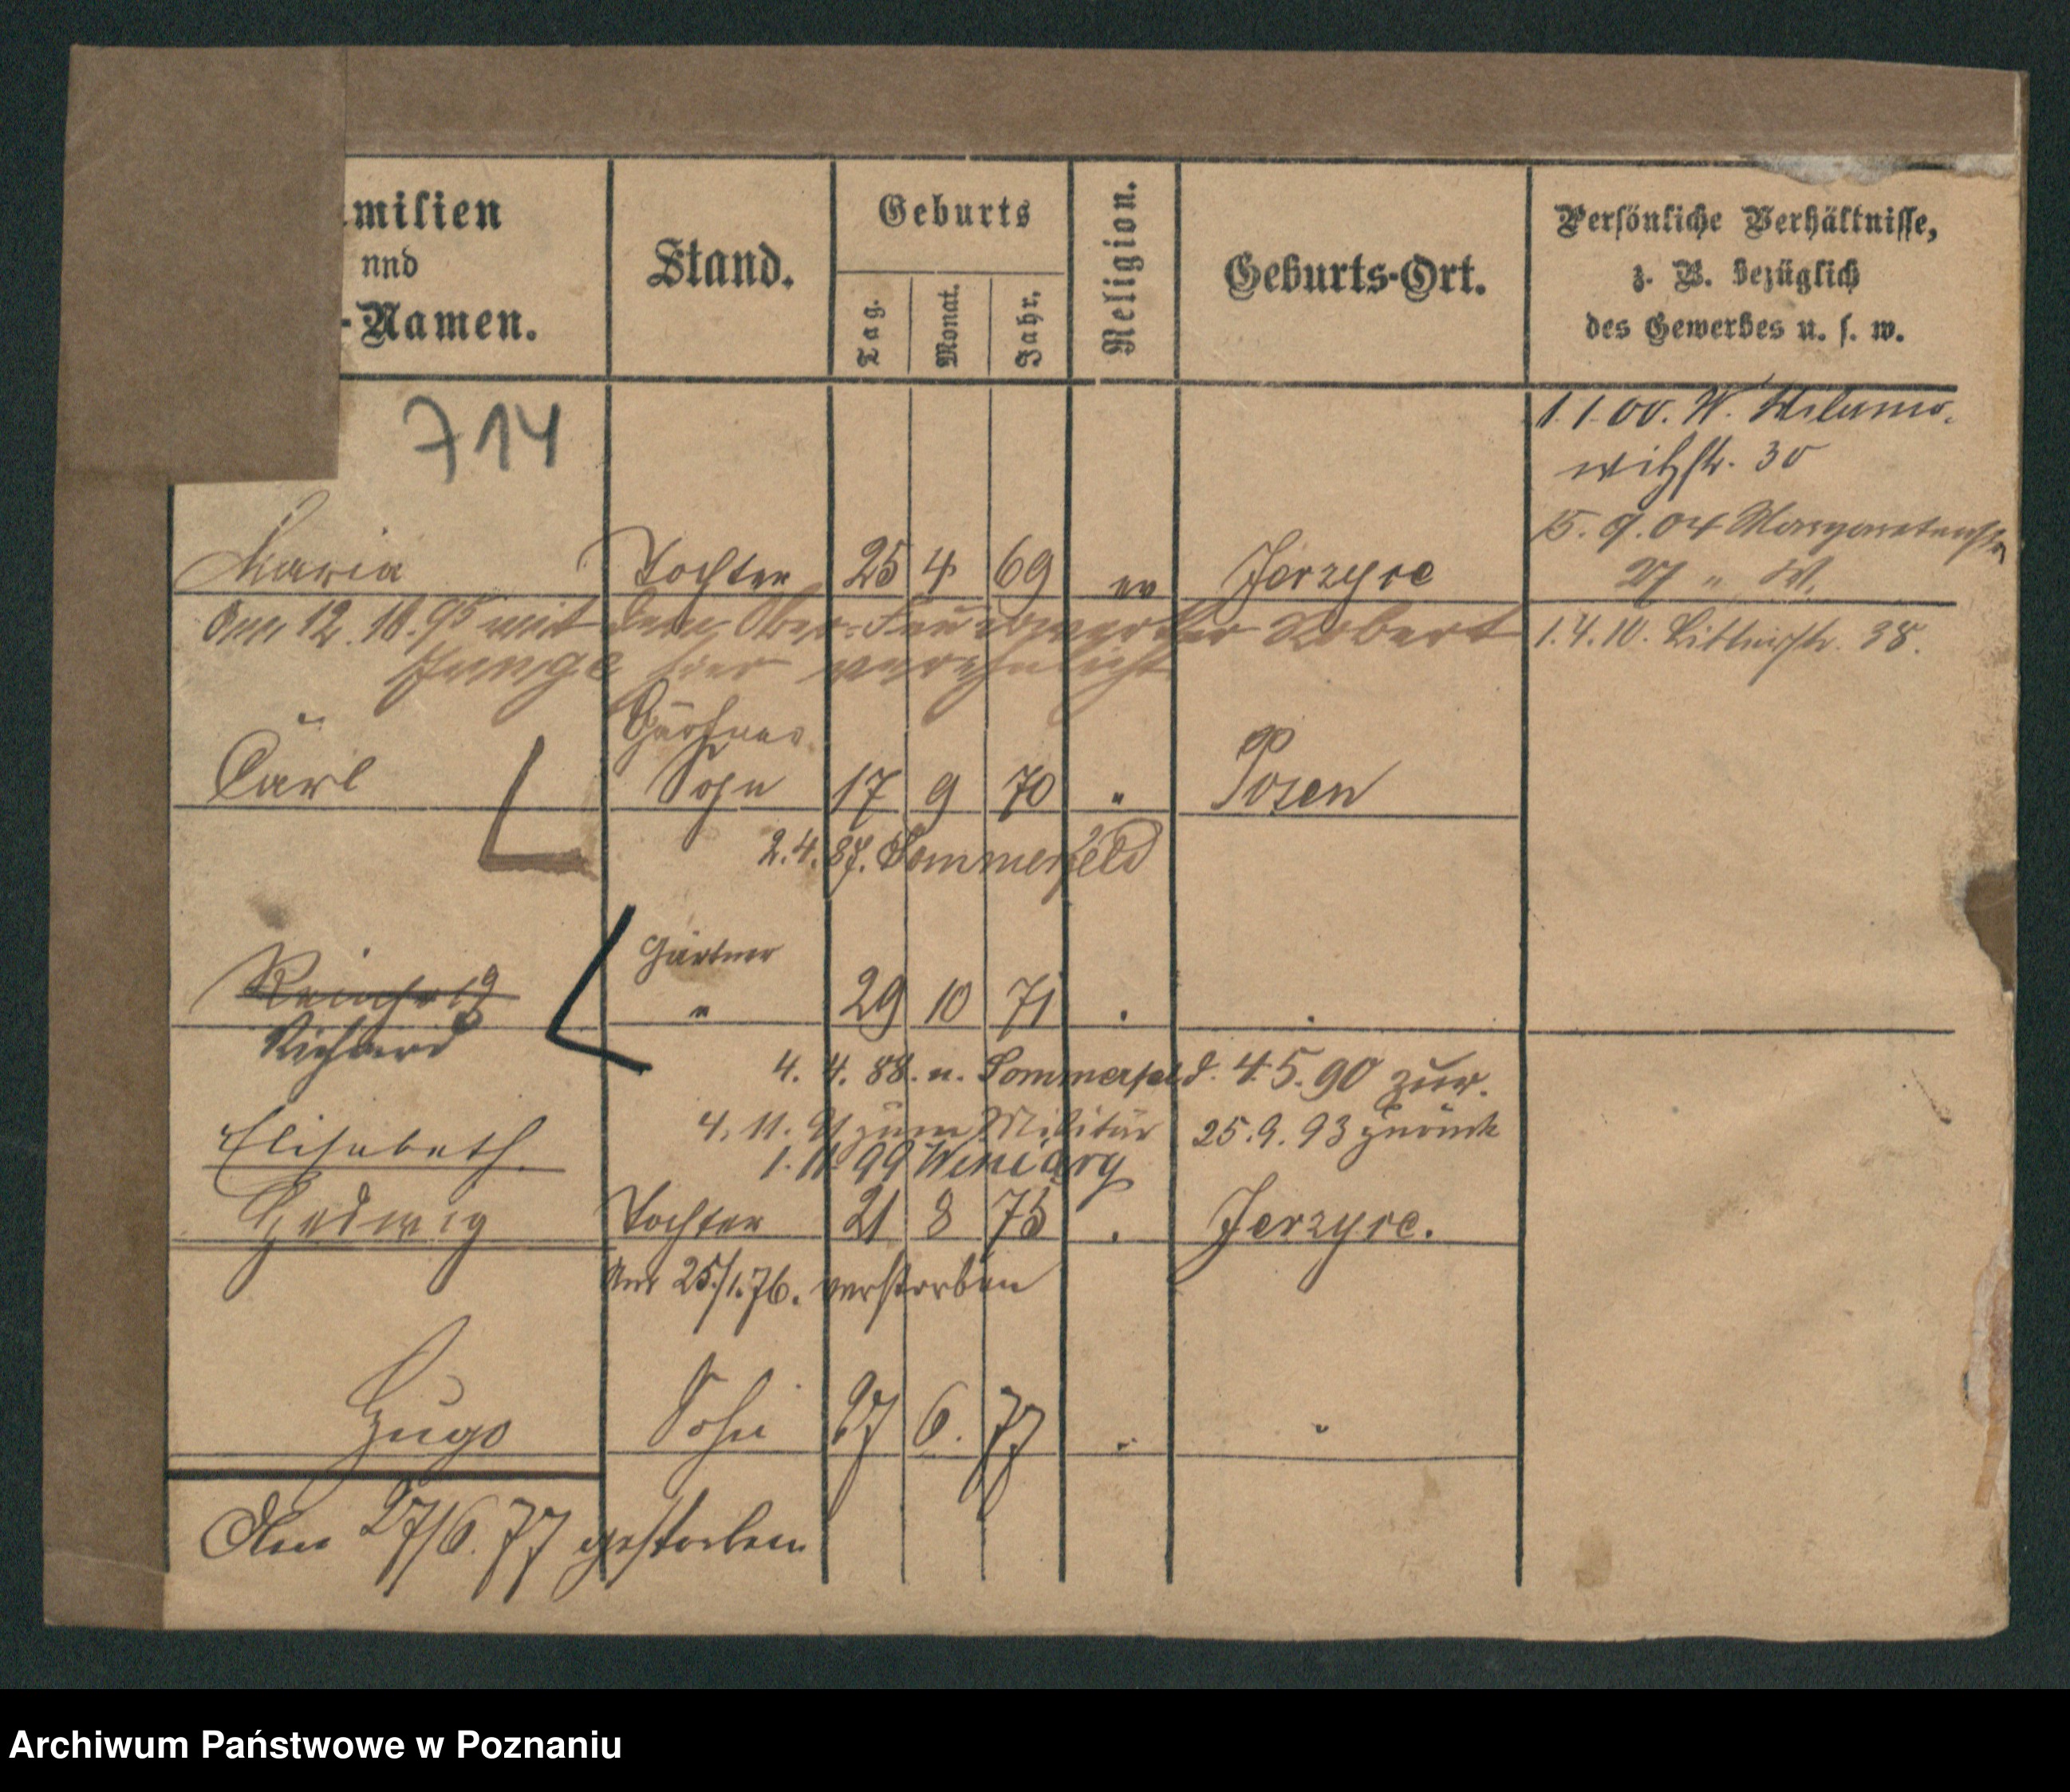 milien
und
-Namen.
Stand.
Geburts
Tag.
Monat.
Jahr.
Religion.
Geburts-Ort.
Persönliche Verhältnisse,
z. B. bezüglich
des Gewerbes u. s. w.
714
1. 1. 00. W.
witzstr. 30
15. 9. 04 Margaretenstr
27 " W.
Maria Tochter 25 4 69 ev Jerzyce
Am 12. 10. 95 mit dem Ober-Feuerwerker Robert
hier verehelicht
1. 4. 10. 38.
Gärtner
Carl Sohn 17 9 70 " Posen
2. 4. 87. Sommerfeld
Gärtner
" 29 10 71 . .
Richard
4. 4. 88. n. Sommerfeld. 4. 5. 90 zur.
4. 11. 91 zum Militär 25. 9. 93 zurück
1. 11. 99 Winiary
Elisabeth
Hedwig Tochter 21 8 75 . Jerzyce.
Am 25./1. 76. verstorben
Hugo Sohn 27 6. 77 " "
Am 27/6. 77 gestorben
Archiwum Państwowe w Poznaniu